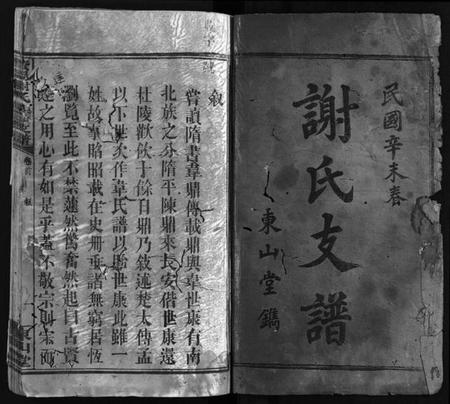 民國辛未春
謝氏支譜
東山堂鐫
敘
嘗讀隋書韋鼎傳載鼎與韋世康有南
北族之分隋平陳鼎來長安偕世康還
杜陵歡飲十餘日鼎乃敘述楚太傅孟
以下世次作韋氏譜以貽世康此雖一
姓故事昭昭載在史册垂諸無窮昔恆
瀏覽至此不禁蘧然舊奮然起曰古賢
遠之用心有如是乎蓋不敬宗則宗
謝氏支譜
卷首